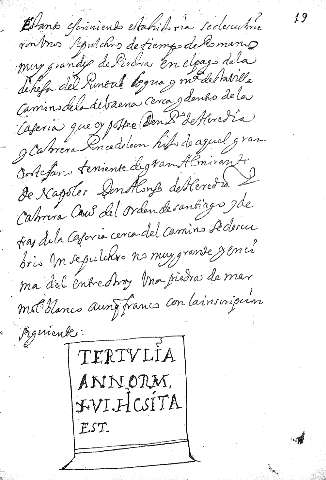 19
Estando escriuiendo esta historia se descubrie
ron tres sepulchros de tiempo de Romanos
muy grandes de Piedra en el pago de la
dehesa del legua y mª de la villa
Camino de la de baena cerca y dentro de la
Caseria que oy posee Don de Heredia
y Cabrera hijo de aquel gran
teniente de gran Almirante
de Napoles Don Alonso de Heredia
Cabrera Cauº del Orden de santiago y de
tras de la Caseria cerca del camino se descu
brio Un sepulchro no muy grande y enci
ma del entre otros Una piedra de mar
mol blanco con la inscripcion
siguiente:
TERTVLIA
ANNORM.
XVI.HCSITA
EST.